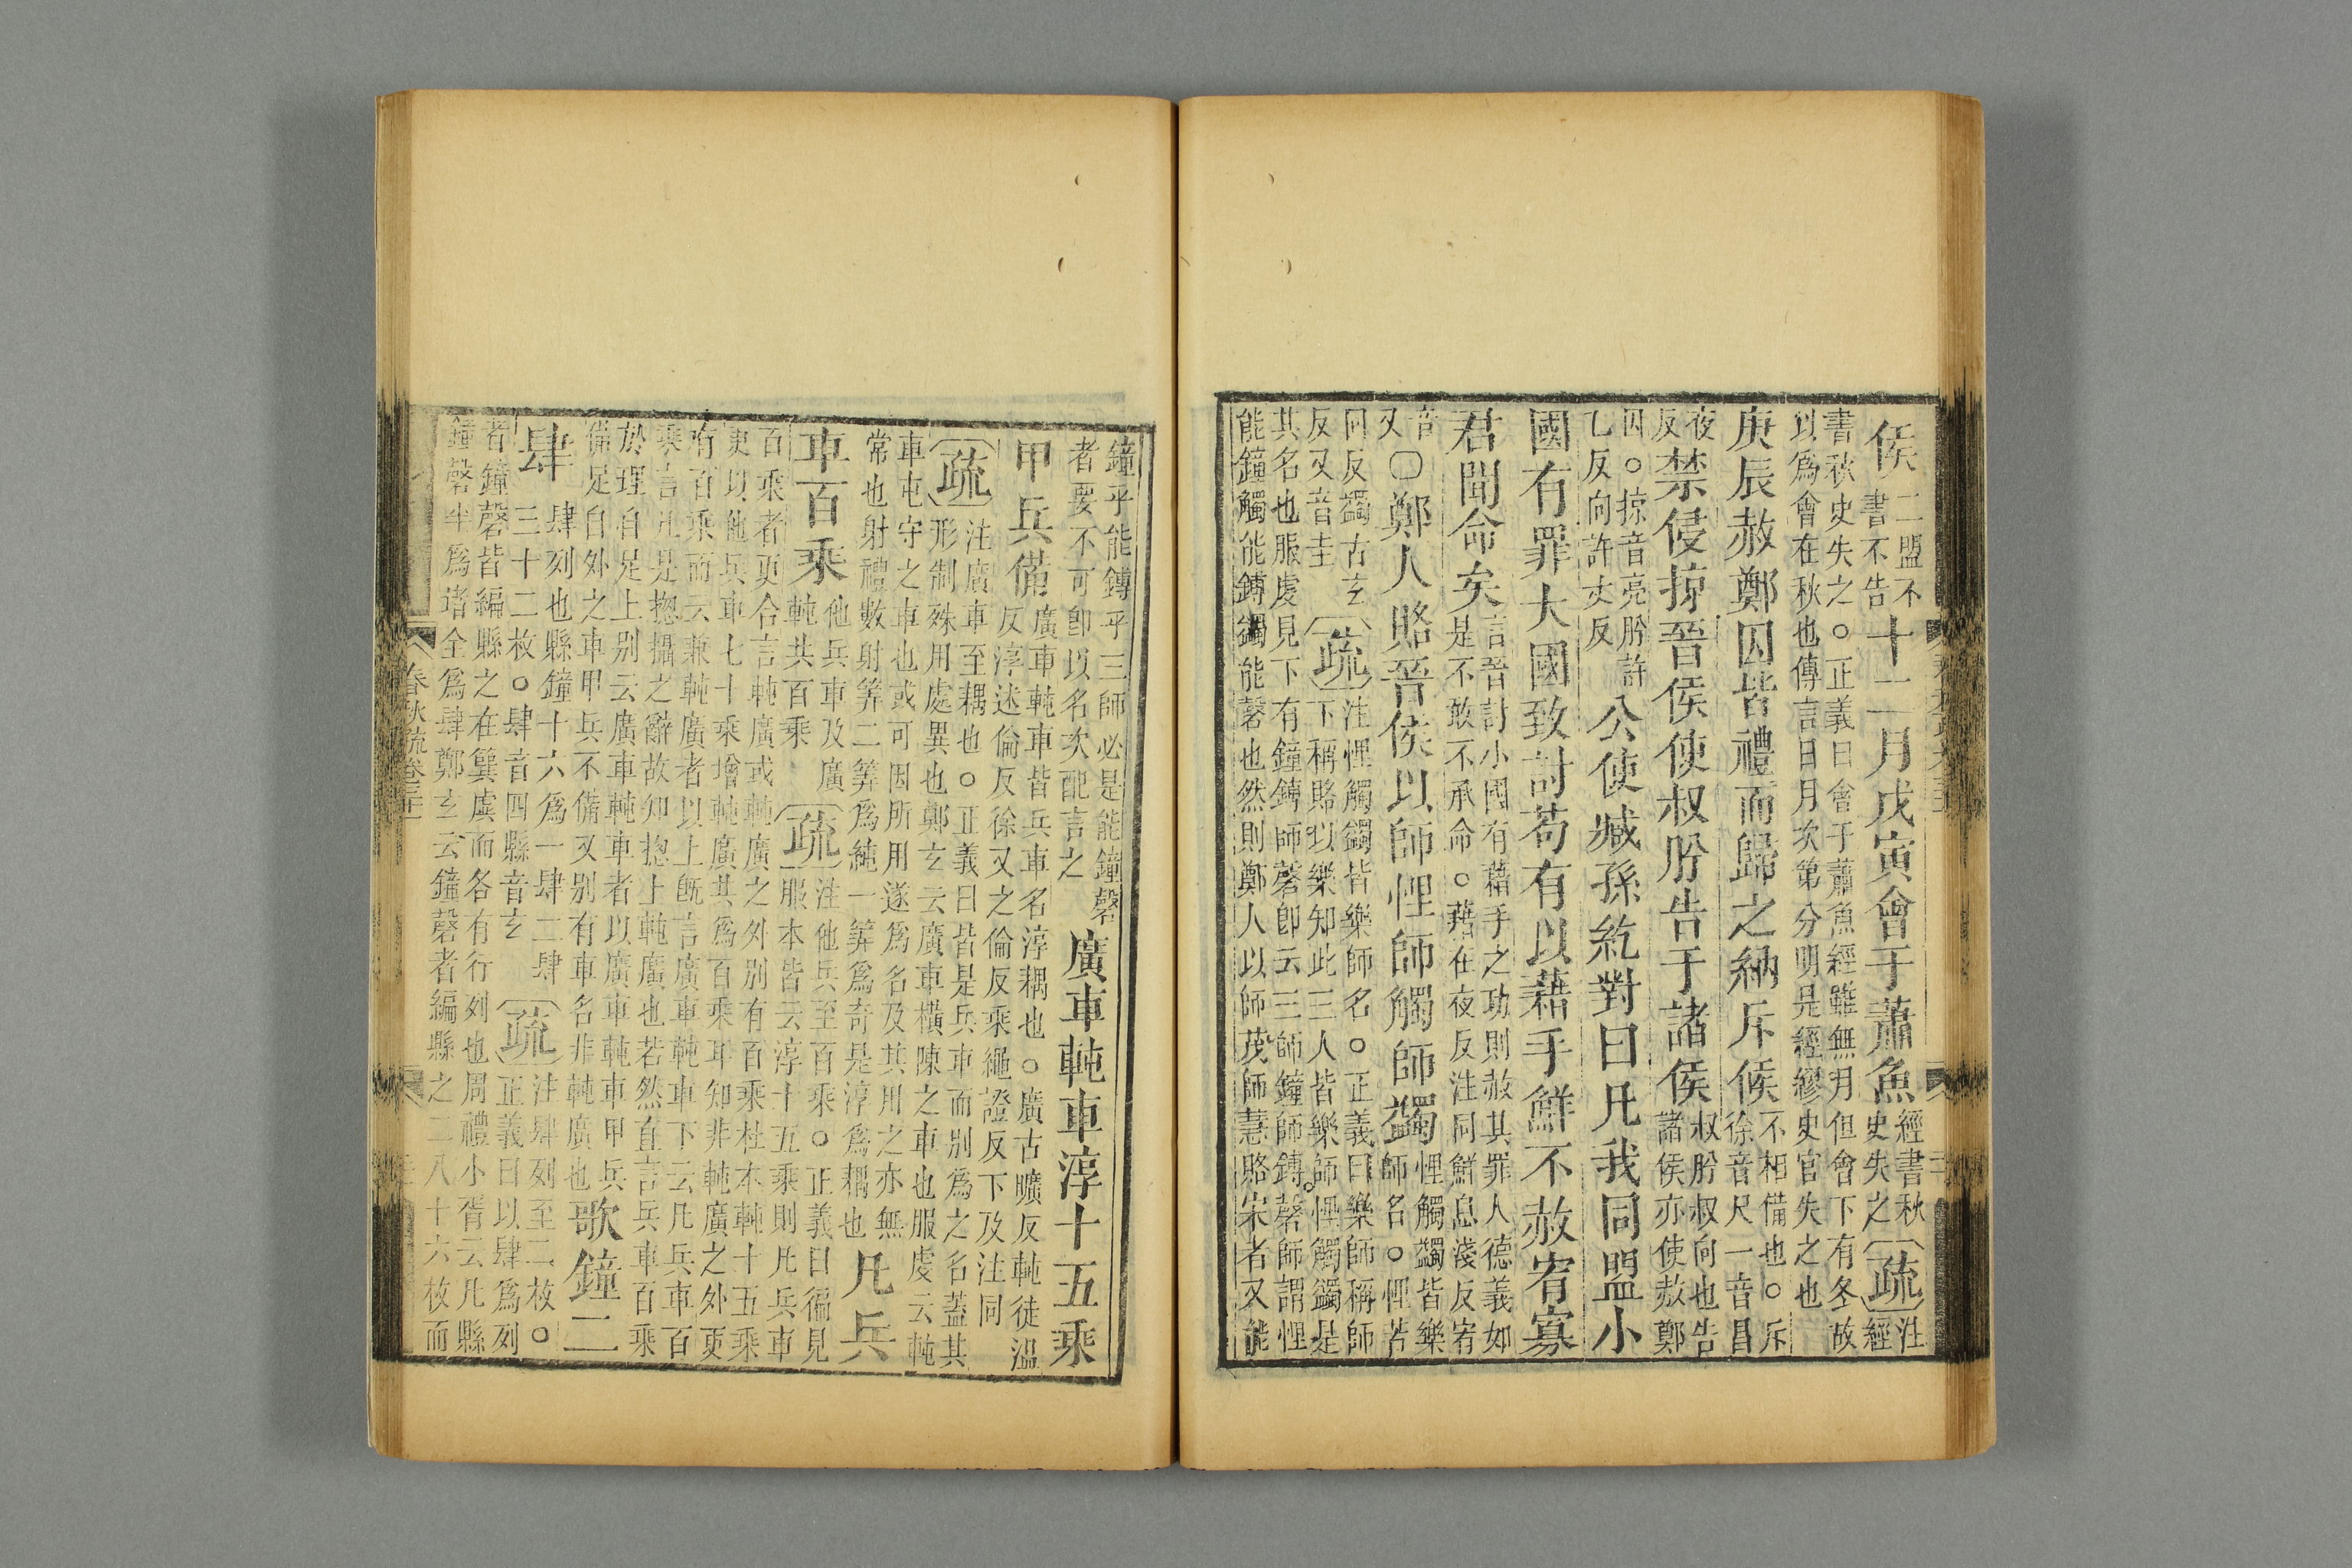 侯
二盟不
書不告
十二月戊寅會于蕭魚
經書秋
史失之
疏
注
經
書秋史失之。正義曰會于蕭魚經雖無月但會下有冬故
以爲會在秋也傳言日月次第分明是經繆史官失之也
庚辰赦鄭囚皆禮而歸之納斥候
不相備也。斥
徐音尺一音昌
夜
反
禁侵掠晉侯使叔肸告于諸侯
叔肸叔向也告
諸侯亦使赦鄭
囚。掠音亮肸許
乙反向許丈反
公使臧孫紇對曰凡我同盟小
國有罪大國致討苟有以藉手鮮不赦宥寡
君聞命矣
言晉討小國有藉手之功則赦其罪人德義如
是不敢不承命。藉在夜反注同鮮息淺反宥
音
又
〇鄭人賂晉侯以師悝師觸師蠲
悝觸蠲皆樂
師名。悝苦
回反蠲古玄
反又音圭
疏
注悝觸蠲皆樂師名。正義曰樂師稱師
下稱賂以樂知此三人皆樂師悝觸蠲是
其名也服虔見下有鐘鎛師磬卽云三師鐘師鎛。磬師謂悝
能鐘觸能鎛蠲能磬也然則鄭人以師茂師慧賂宋者又能
鐘乎能鎛乎三師必是能鐘磬
者要不可卽以名次配言之
廣車軘車淳十五乘
甲兵備
廣車軘車皆兵車名淳耦也。廣古曠反軘徒溫
反淳述倫反徐又之倫反乘繩證反下及注同
疏
注廣車至耦也。正義曰皆是兵車而别爲之名蓋其
形制殊用處異也鄭玄云廣車橫陳之車也服虔云軘
車屯守之車也或可因所用遂爲名及其用之亦無
常也射禮數射筭二筭爲純一筭爲奇是淳爲耦也
凡兵
車百乘
他兵車及廣
軘共百乘
疏
注他兵至百乘。正義曰徧見
服本皆云淳十五乘則凡兵車
百乘者更合言軘廣或軘廣之外别有百乘杜本軘十五乘
更以他兵車七十乘增軘廣共爲百乘耳知非軘廣之外更
有百乘而云兼軘廣者以上旣言廣車軘車下云凡兵車百
乘言凡是揔攝之辭故知揔上軘廣也若然直言兵車百乘
於理自足上别云廣車軘車者以廣車軘車甲兵
備足自外之車甲兵不備又别有車名非軘廣也
歌鐘二
肆
肆列也縣鐘十六爲一肆二肆
三十二枚。肆音四縣音玄
疏
注肆列至二枚。
正義曰以肆爲列
者鐘磬皆編縣之在簨虡而各有行列也周禮小胥云凡縣
鐘磬半爲堵全爲肆鄭玄云鐘磬者編縣之二八十六枚而
春秋疏卷三十一